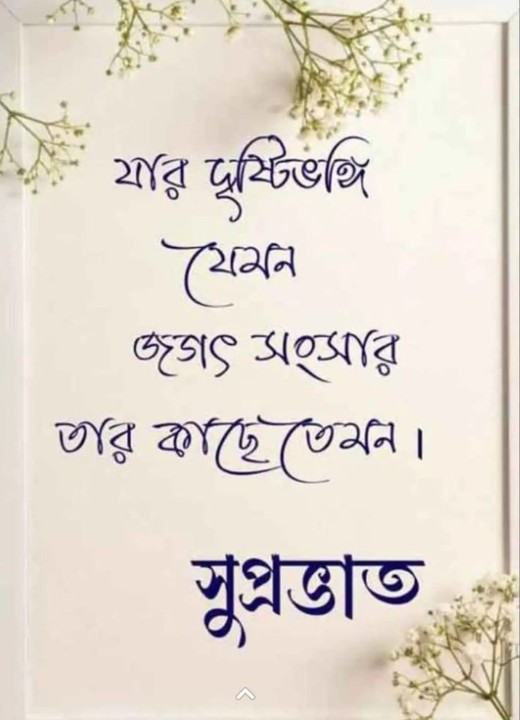 যার দৃষ্টিভঙ্গি
যেমন
জগৎ সংসার
তার কাছে তেমন।
সুপ্রভাত